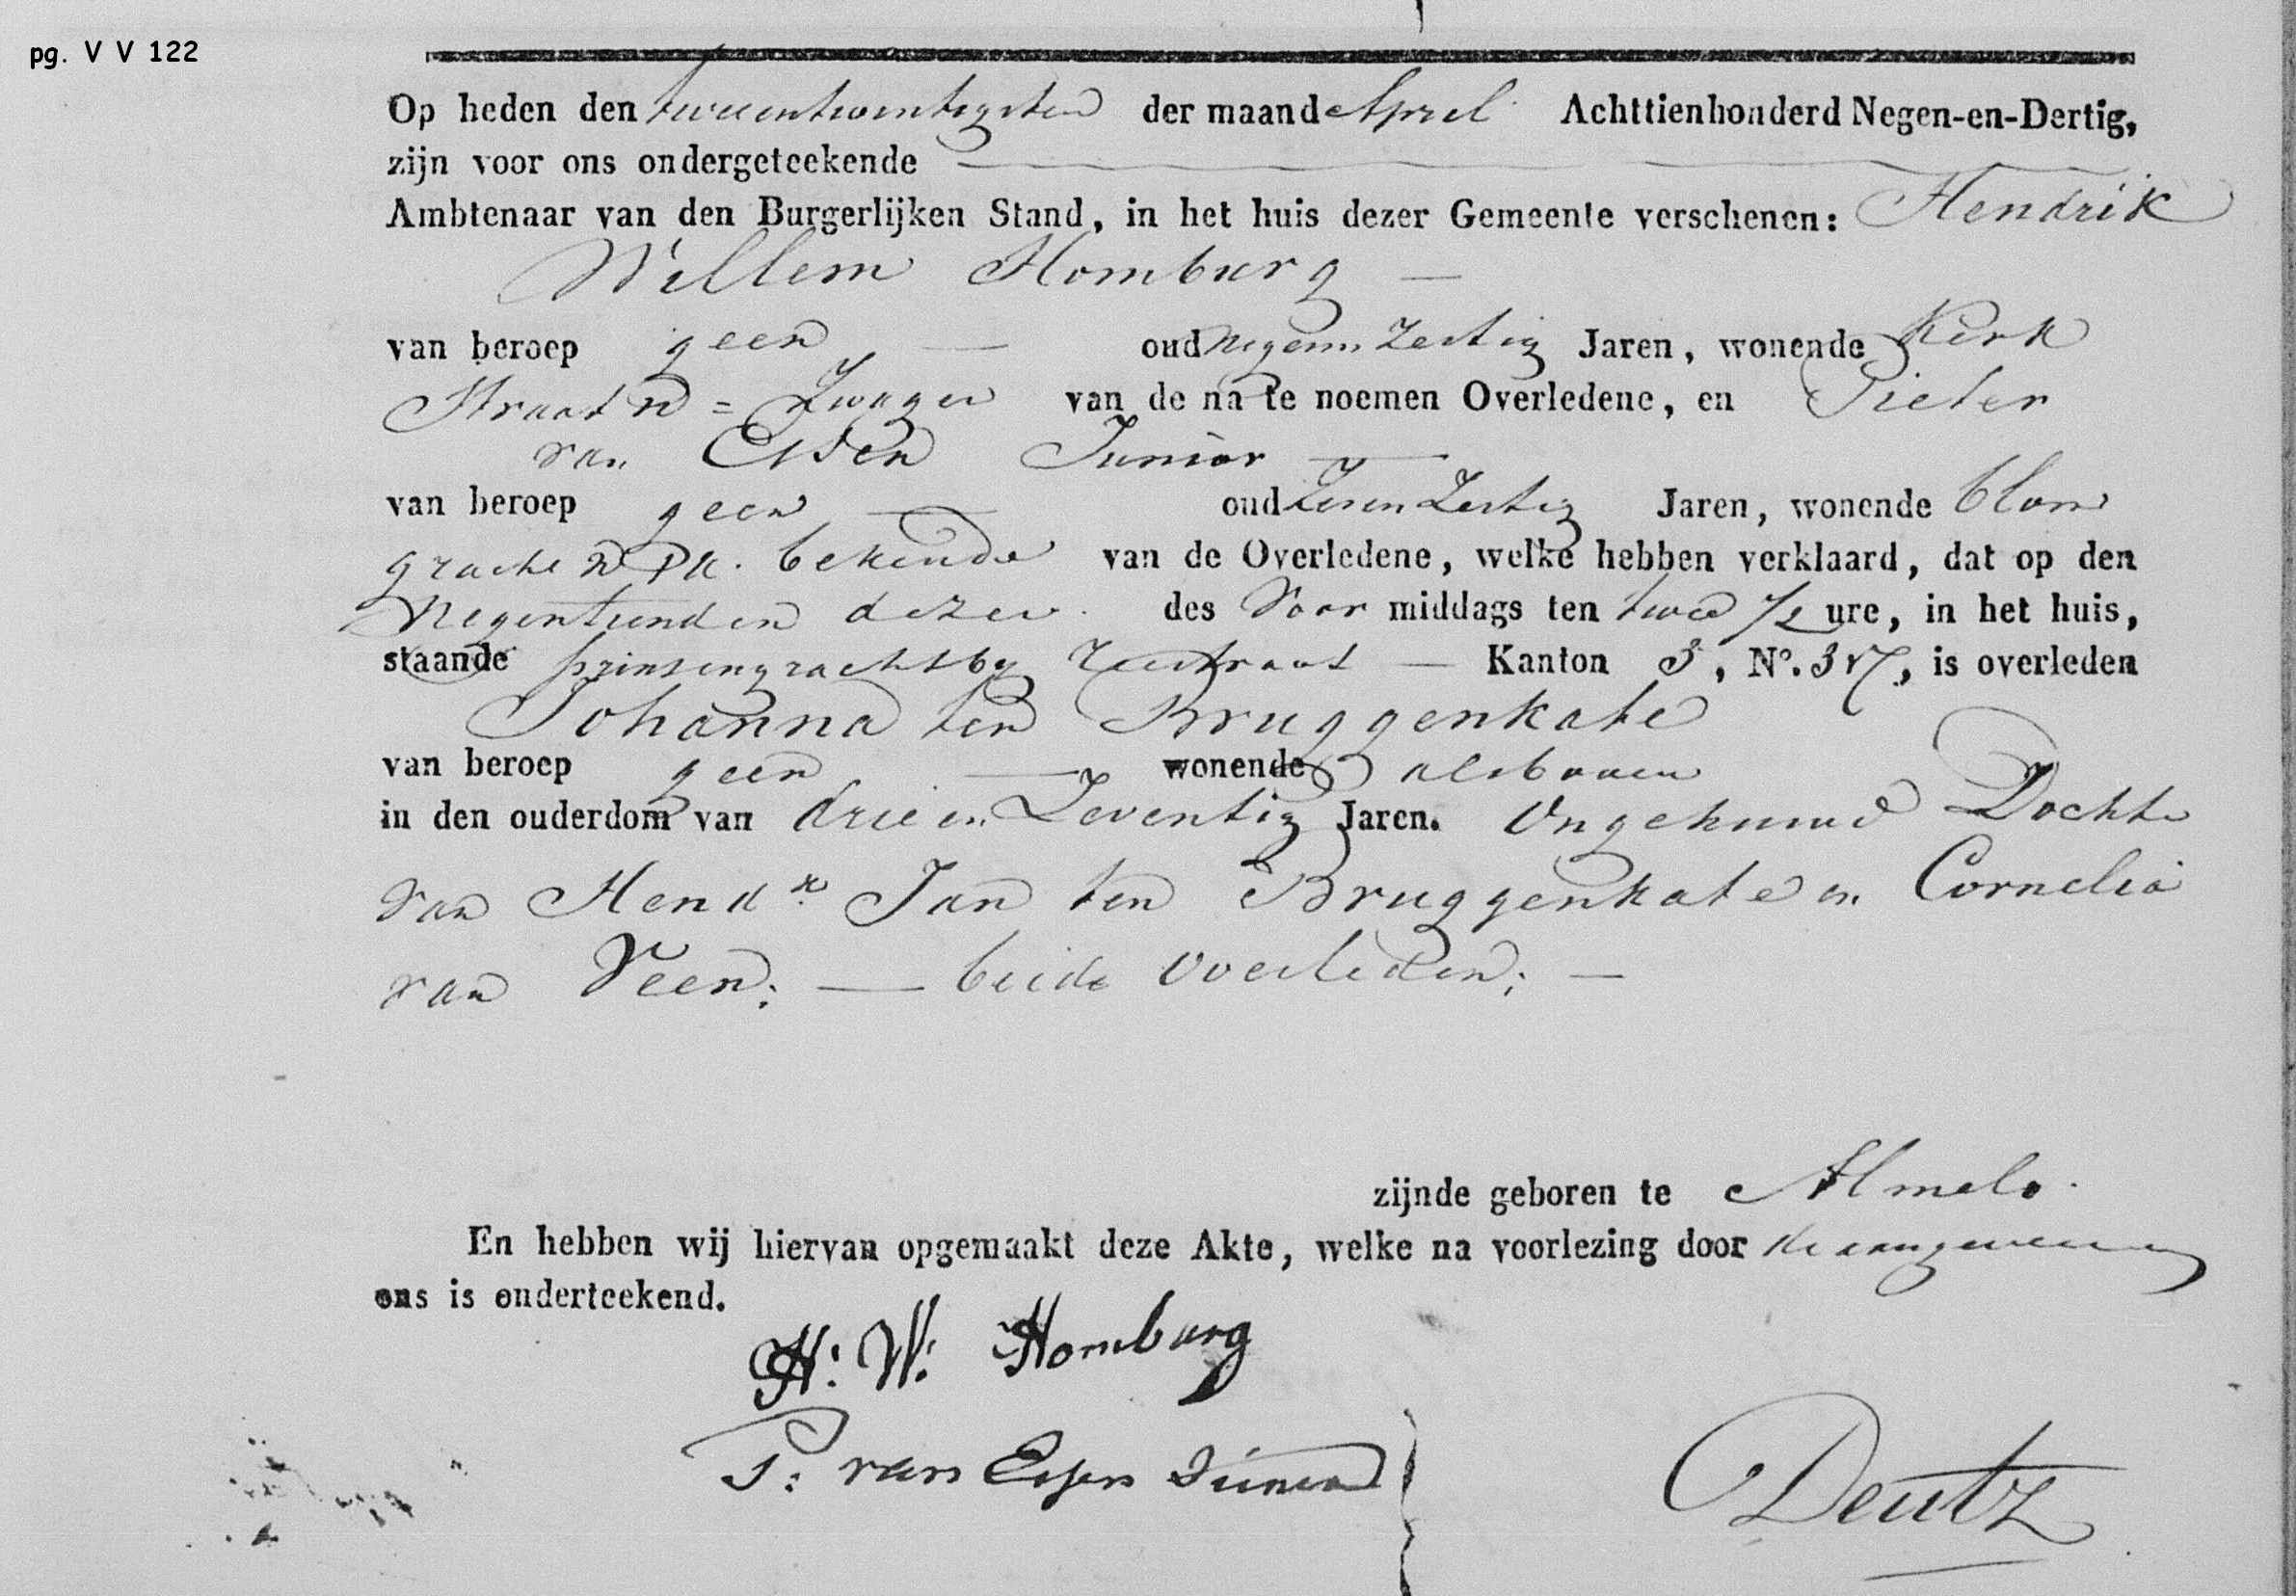 pg. V V 122
Op heden den tweentwentigsten der maand April Achttienhonderd Negen-en-Dertig,
zijn voor ons ondergeteekende
Ambtenaar van den Burgerlijken Stand, in het huis dezer Gemeente verschenen: Hendrik
Willem Homburg —
van beroep geen — oud negen en Zestig Jaren, wonende Kerk
Straat = Zwager van de na te noemen Overledene, en Pieter
van Essen Junior —
van beroep geen — oud Zeven Zestig Jaren, wonende blom
gracht bekende van de Overledene, welke hebben verklaard, dat op den
Negentienden dezer des Voor middags ten twee 1/2 ure, in het huis,
staande prinsengracht by Reestraat — Kanton 3, N°. , is overleden
Johanna ten Bruggenkate
van beroep geen — wonende alsboven
in den ouderdom van drie en Zeventig Jaren. Ongehuwd Dochter
van Hendk. Jan ten Bruggenkate en Cornelia
van Veen; — beide Overleden; —
zijnde geboren te Almelo.
En hebben wij hiervan opgemaakt deze Akte, welke na voorlezing door de aangevers en
ons is onderteekend.
H: W: Homburg
P: van Essen Junior
Deutz